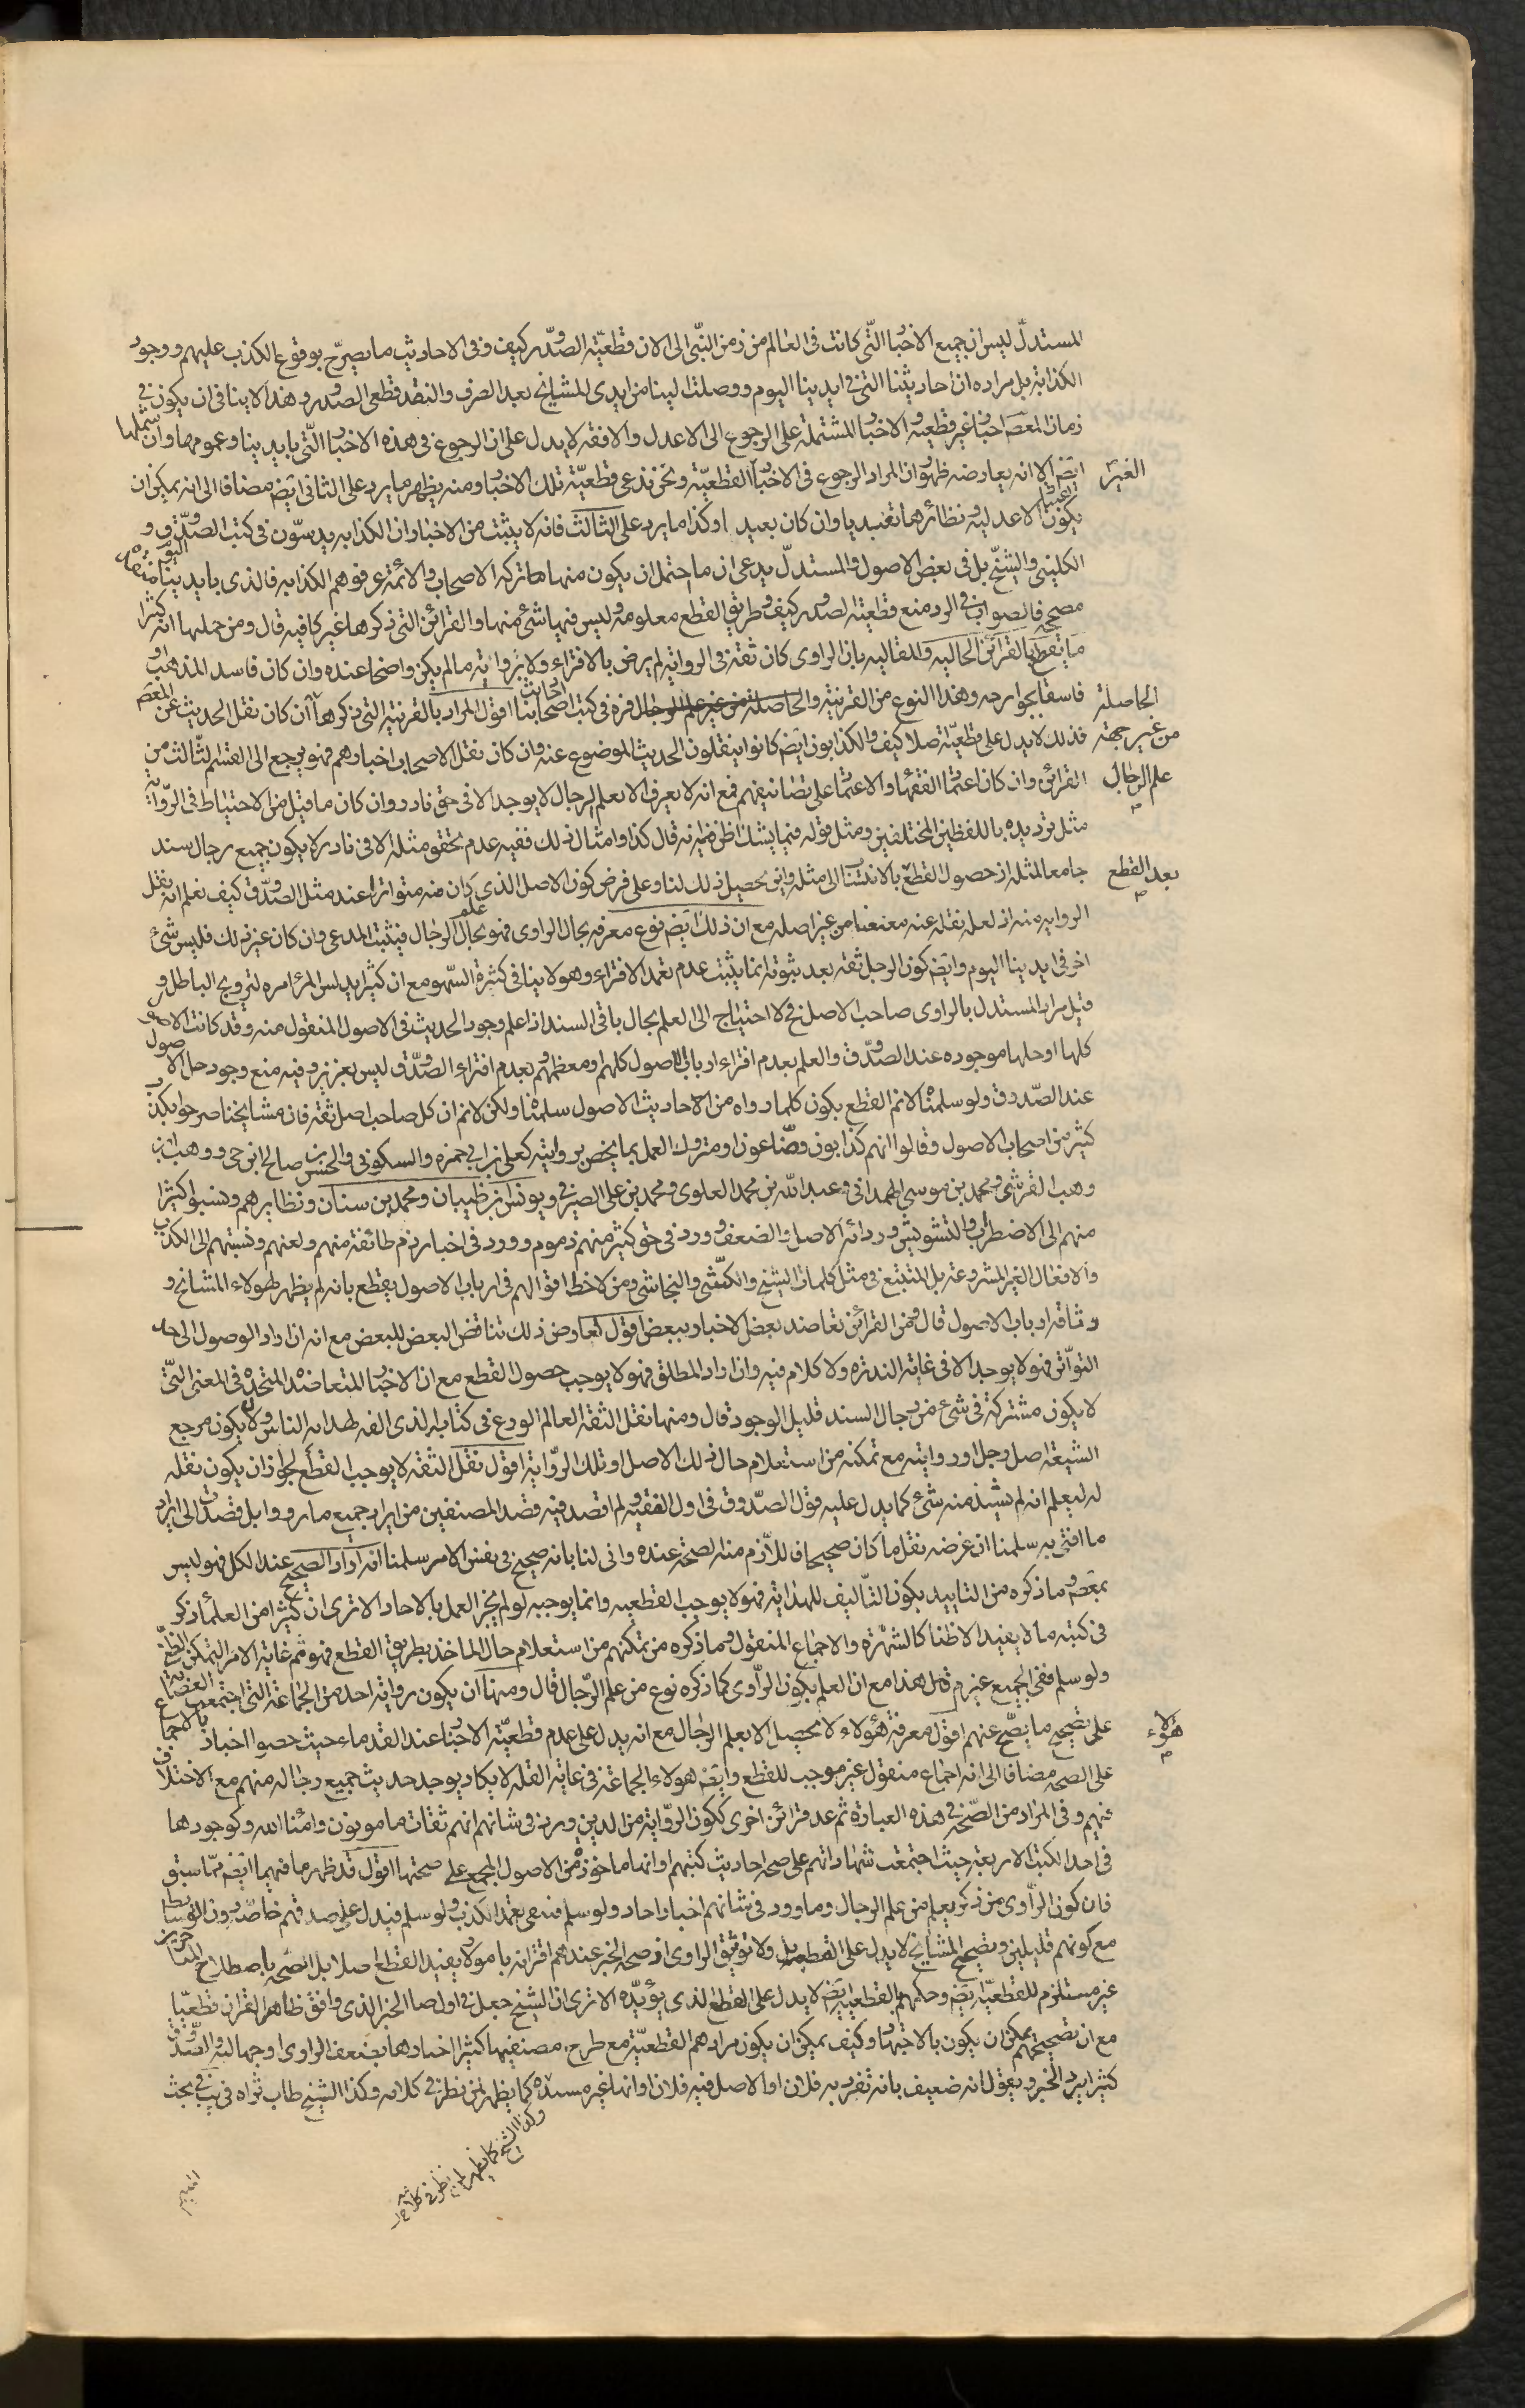 المستدل ليس ان جميع الاخبار التى كانت فى العالم من زمن النبى الى الان قطعية الصدور كيف وفى الاحاديث ما يصرح بوقوع الكذب عليهم ووجود
الكذابة بل مراده ان احاديثنا التى فى ايدينا اليوم ووصلت الينا من ايدى المشايخ بعد الصرف والنقد قطعى الصدور وهذا لا ينافى ان يكون فى
زمان المعصـ اخبار غير قطعية والاخبار المشتملة على الرجوع الى الاعدل والافقه لا يدل على ان الرجوع فى هذه الاخبار التى بايدينا وعمومها وان يشملها
ايضـ الا انه يعارضه ظهور ان المراد الرجوع فى الاخبار الغير القطعية ونحن ندعى قطعية تلك الاخبار ومنه يظهر ما يرد على الثانى ايضـ مضافا الى انه يمكن ان
يكون اعتبار الاعدلية ونظائرها تعبديا وان كان بعيد او كذا ما يرد على الثالث فانه لا يثبت من الاخبار ان الكذابه يدسون فى كتب الصدوق و
الكلينى والشيخ بل فى بعض الاصول والمستدل يدعى ان ما احتمل ان يكون منها ما تركه الاصحاب والائمة عرفوهم الكذابه فالذى بايدينا اليوم
مصحح فالصواب فى الرد منع قطعية الصدور كيف وطريق القطع معلومة وليس فيها شئ منها والقرائن التى ذكرها غير كافيه قال ومن جملها انه كثيرا
ما يقطع بالقرائن الحاليه والمقاليه بان الراوى كان ثقة فى الرواية لم يرض بالافتراء ولا برواية مالم يكن واضحا عنده وان كان فاسد المذهب او
فاسقا بجوارحه وهذا النوع من القرينة والحاصلة من غير جهة علم الرجال فره فى كتب احاديث اصحابنا اقول المراد بالقرينة التى ذكرها ان كان نقل الحديث عن المعصـ
فذلك لا يدل على قطعيته اصلا كيف والكذابون ايضـ كانوا ينقلون الحديث الموضوع عنه وان كان نقل الاصحاب اخبارهم فهو يرجع الى القسم الثالث من
القرائن وان كان اعتماد الفقهاء والاعتماد على تصانيفهم فمع انه لا يعرف الا بعلم الرجال لا يوجد الا فى حق نادر وان كان ما قيل من الاحتياط فى الرواية
مثل ترديده باللفظين المختلفين ومثل قوله فيما يشك اظن فيه انه قال كذا وامثال ذلك ففيه عدم تحقق مثله الا فى نادر لا يكون جميع رجال سند
جامعا لمثله اذ حصول القطع بعد القطع بالانتساب الى مثله واين تحصيل ذلك لنا وعلى فرض كون الاصل الذى كان منه متواترا عند مثل الصدوق كيف نعلم انه نقل
الرواية منه اذ لعله نقله عنه معنعنا من غير اصله مع ان ذلك ايضـ نوع معرفه بحال الراوى فهو علم بحال الرجال فيثبت المدعى وان كان غير ذلك فليس شئ
اخر فى ايدينا اليوم وايضـ كون الرجل ثقه بعد ثبوته انما يثبت عدم تعمد الافتراء وهو لا ينافى كثرة السهو مع ان كثيرا يدلس المرئ امره لترويج الباطل و
قيل مراد المستدل بالراوى صاحب الاصل فح لا احتياج الى العلم بحال باقى السند اذا علم وجود الحديث فى الاصول المنقول منه وقد كانت الاصول
كلها او جلها موجوده عند الصدوق والعلم بعدم افتراء ارباب الاصول كلهم او معظمهم وبعدم افتراء الصدوق ليس بعزيز وفيه منع وجود جل الاصول
عند الصدوق ولو سلمناه لا نم القطع بكون كلما رواه من الاحاديث الاصول سلمناه ولكن لا نم ان كل صاحب اصل ثقة فان مشايخنا صرحوا بكذب
كثير من اصحاب الاصول وقالوا انهم كذابون وضاعون او متروك العمل بما يخص بروايته كعلى بن ابى حمزه والسكونى والحسن بن صالح ابن حى ووهب بن
وهب القرشى ومحمد بن موسى الهمدانى وعبد الله بن محمد العلوى ومحمد بن على الصيرفى ويونس بن ظبيان ومحمد بن سنان ونظايرهم ونسبوا كثيرا
منهم الى الاضطراب والتشويش وردائة الاصل والضعف وورد فى حق كثير منهم ذموم وورد فى اخبار ذم طائفة منهم ولعنهم ونسبتهم الى الكذب
والافعال الغير المشروعة بل المتتبع فى مثل كلمات الشيخ والكشى والنجاشى ومن لاحظ اقوالهم فى ارباب الاصول يقطع بانه لم يظهر لهولاء المشايخ و
وثاقة ارباب الاصول قال فمن القرائن تعاضد بعض الاخبار ببعض اقول تعارض ذلك تناقض البعض للبعض مع انه ان اراد الوصول الى حد
التواتر فهو لا يوجد الا فى غاية الندرة ولا كلام فيه وان اراد المطلق فهو لا يوجب حصول القطع مع ان الاخبار المتعاضدة المتحدة فى المعنى التى
لا يكون مشتركة فى شئ من رجال السند قليل الوجود قال ومنها نقل الثقة العالم الورع فى كتابه الذى الفه لهداية الناس ولان يكون مرجع
الشيعة اصل رجل او روايته مع تمكنه من استعلام حال ذلك الاصل او تلك الرواية اقول نقل الثقة لا يوجب القطع لجواز ان يكون نقله
له ليعلم انه لم يشذ منه شئ كما يدل عليه قول الصدوق فى اول الفقيه ولم اقصد فيه قصد المصنفين من ايراد جميع ما رووا بل قصدت الى ايراد
ما افتى به سلمنا ان غرضه نقل ما كان صحيحا فاللازم منه الصحة عنده وانى لنا بانه صحيح فى نفس الامر سلمنا انه اراد الصحيح عند الكل فهو ليس
بمعصوم وما ذكره من التاييد بكون التأليف للهداية فهو لا يوجب القطعيه وانما يوجبه لو لم يجز العمل بالاحاد الا ترى ان كثيرا من العلماء ذكر
فى كتبه ما لا يفيد الا ظنا كالشهرة والاجماع المنقول وما ذكره من تمكنهم من استعلام حال الماخذ بطريق القطع فهو ثم غاية الامر التمكن الظن
ولو سلم ففى الجميع غير م قيل هذا مع ان العلم بكون الراوى كما ذكره نوع من علم الرجال قال ومنها ان يكون رواية احد من الجماعة التى اجتمعت العصابة
على تصحيح ما يصح عنهم اقول معرفة هؤلاء لا يحصل الا بعلم الرجال مع انه يدل على عدم قطعية الاخبار عند القدماء حيث خصوا اخبار هؤلاء بالاجماع
على الصحه مضافا الى انه اجماع منقول غير موجب للقطع وايضـ هولاء الجماعة فى غاية القلة لا يكاد يوجد حديث جميع رجاله منهم مع الاختلاف
فيهم وفى المراد من الصحة فى هذه العبارة ثم عد قرائن اخرى ككون الرواية من الذين ورد فى شانهم انهم ثقات مامونون وامناء الله وكوجودها
فى احد الكتب الاربعة حيث اجتمعت شهاداتهم على صحة احاديث كتبهم او انها ماخوذة من الاصول المجمع على صحتها اقول قد ظهر ما فيهما ايضـ مما سبق
فان كون الراوى من ذكر يعلم من علم الرجال وما ورد فى شانهم اخبار احاد ولو سلم فينفى تعمد الكذب ولو سلم فيدل على صدقهم خاصة دون الوسايط
مع كونهم قليلين وتصحيح المشايخ لا يدل على القطعية بل ولا توثيق الراوى اذ صحة الخبر عندهم اقترانه بامور لا يفيد القطع اصلا بل الصحيح باصطلاح المتاخرين
غير مستلزم للقطعية ايضـ وحكمهم بالقطعية ايضـ لا يدل على القطع الذى يؤيده الا ترى ان الشيخ جعل فى اول صا الخبر الذى وافق ظاهر القران قطعيا
مع ان تصحيحهم يمكن ان يكون بالاجتهاد وكيف يمكن ان يكون مرادهم القطعية مع طرح مصنفيها كثيرا اخبارها بضعف الراوى او جهالته والصدوق
كثيرا يرد الخبر ويقول انه ضعيف بانه تفرد به فلان او الاصل فيه فلان او انها غير مسندة كما يظهر لمن نظر فى كلامه وكذا الشيخ طاب ثراه فى يب فى بحث
وكذا الشيخ كما يظهر لمن نظر فى كلامه